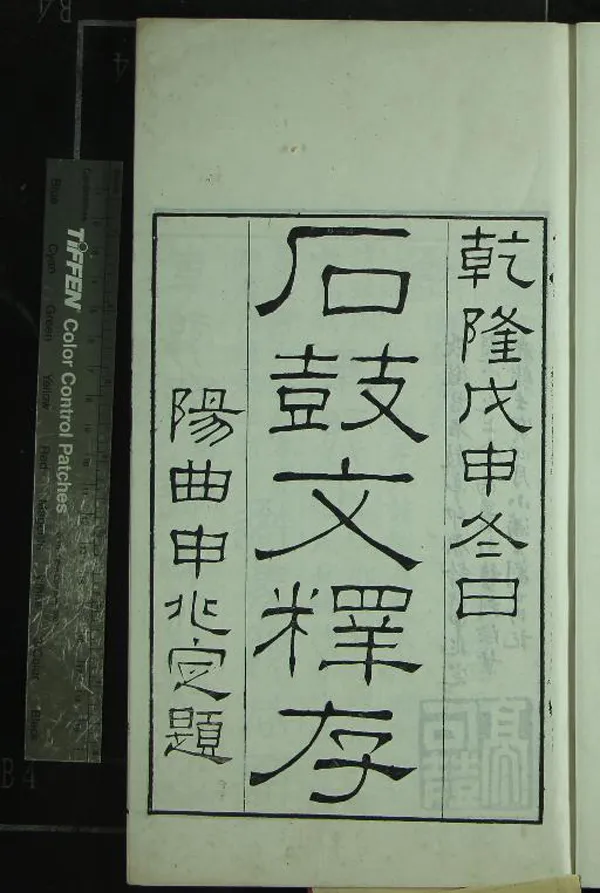 乾隆戊申冬日
石鼓文釋存
陽曲申兆定題
TIFFEN Color Control Patches
Blue
Cyan
Green
Yellow
Red
Black
B4